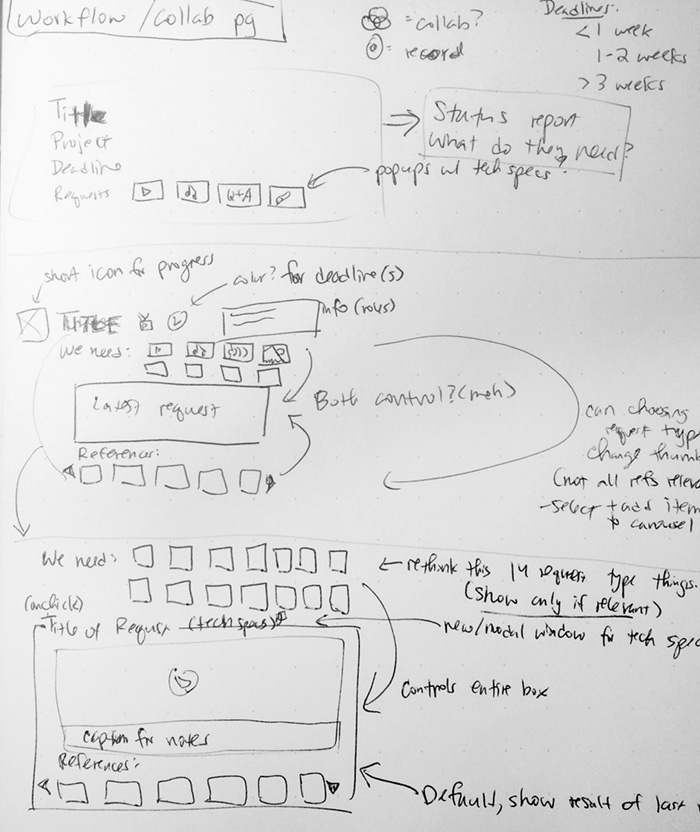 Workflow /collab pg
= collab?
= record
Deadlines:
< 1 week
1-2 weeks
> 3 weeks
Title
Project
Deadline
Requests
Q+A
Status report
What do they need?
popups w/ tech specs
short icon for progress
color? for deadline(s)
TITLE
info (rows)
We need:
Latest request
Both control? (meh)
References:
can choosing
request typ
change thumb
(not all refs releva
- select + add item
to carousel
We need:
rethink this 14 request type things.
(show only if relevant)
(onclick)
Title of Request (tech specs)
new/modal window for tech spec
Controls entire box
caption for notes
References:
Default, show result of last